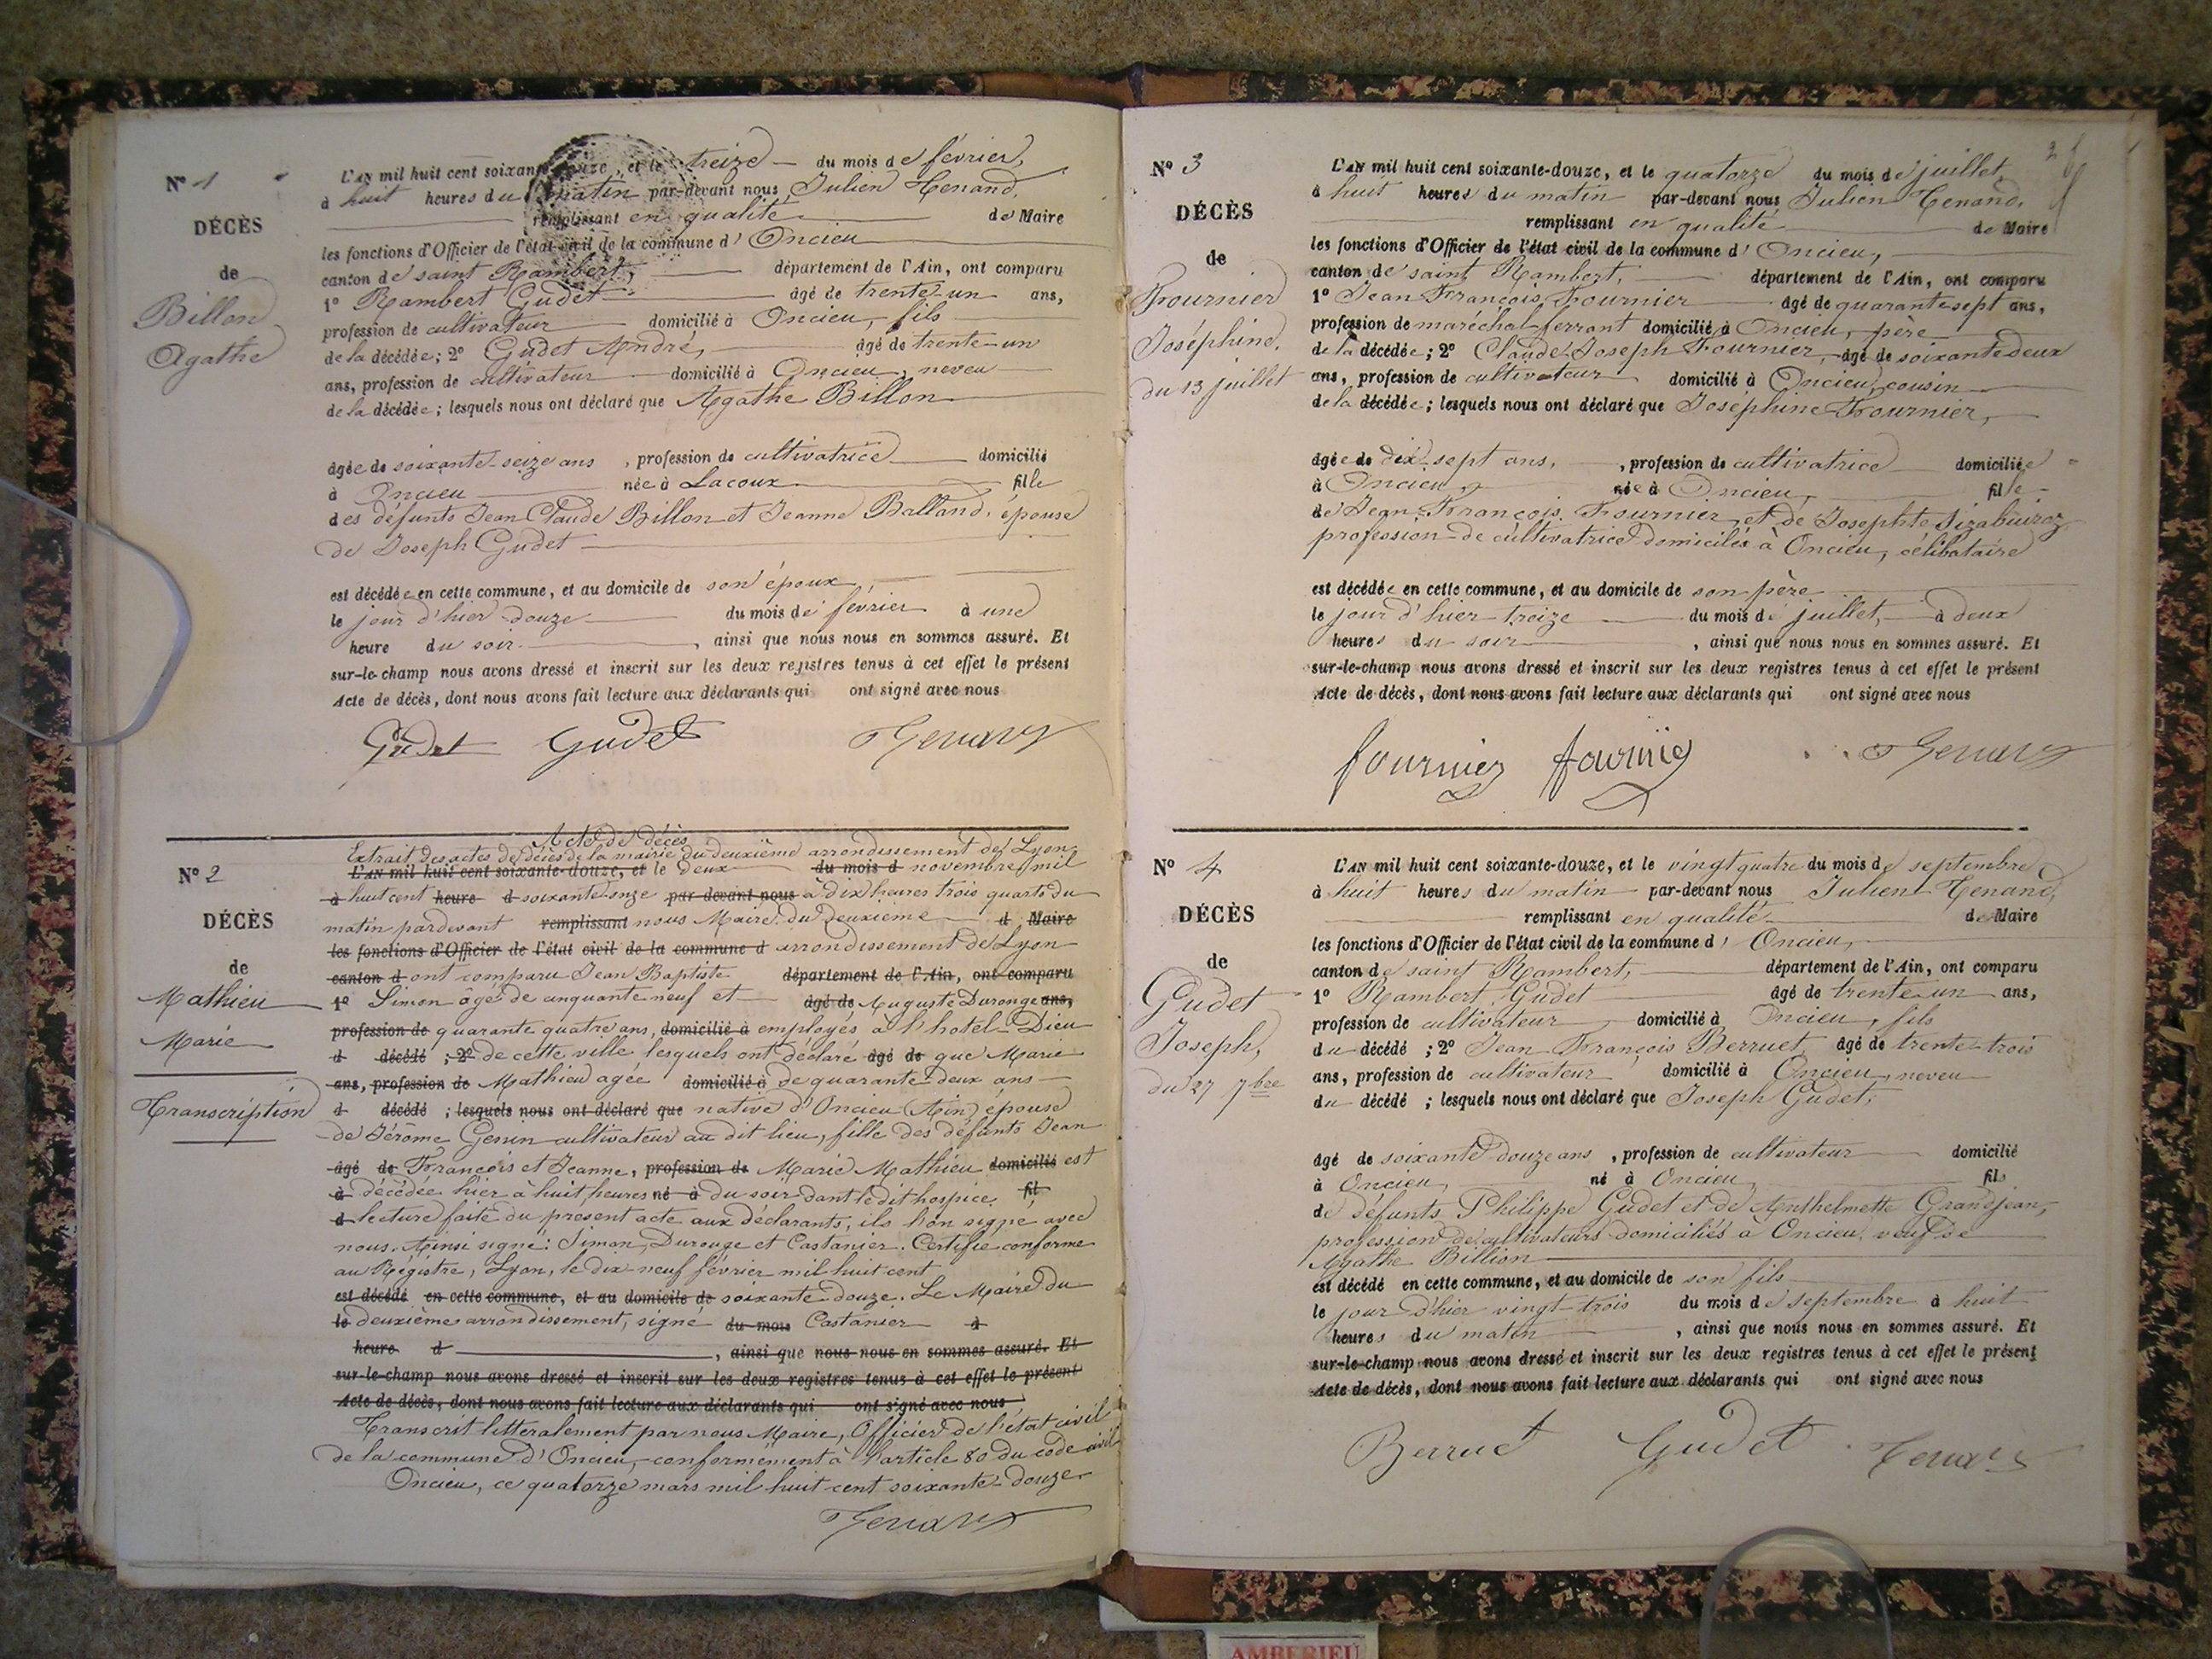 Nº 1
DÉCÈS
de
Billon
Agathe
L'AN mil huit cent soixante-douze, et le treize du mois de février,
à huit heures du matin par-devant nous Julien Tenand,
remplissant en qualité de Maire
les fonctions d'Officier de l'état civil de la commune d' Oncieu
canton de saint Rambert, département de l'Ain, ont comparu
1º Rambert Gudet âgé de trente-un ans,
profession de cultivateur domicilié à Oncieu, fils
de la décédée; 2º Gudet André, âgé de trente-un
ans, profession de cultivateur domicilié à Oncieu, neveu
de la décédée; lesquels nous ont déclaré que Agathe Billon
âgée de soixante-seize ans, profession de cultivatrice domicilié
à Oncieu née à Lacoux fille
des défunts Jean Claude Billon et Jeanne Balland, épouse
de Joseph Gudet
est décédée en cette commune, et au domicile de son époux,
le jour d'hier douze du mois de février à une
heure du soir, ainsi que nous nous en sommes assuré. Et
sur-le-champ nous avons dressé et inscrit sur les deux registres tenus à cet effet le présent
Acte de décès, dont nous avons fait lecture aux déclarants qui ont signé avec nous
Gudet Gudet Tenand
Nº 2
DÉCÈS
de
Mathieu
Marie
Transcription
Acte de décès
Extrait des actes de décès de la mairie du deuxième arrondissement de Lyon
L'AN mil huit cent soixante-douze, et le deux du mois d novembre mil
à huit cent heure d soixante-onze par-devant nous à dix heures trois quarts du
matin pardevant remplissant nous Maire du deuxième d Maire
les fonctions d'Officier de l'état civil de la commune d arrondissement de Lyon
canton d ont comparu Jean Baptiste département de l'Ain, ont comparu
1º Simon âgé de cinquante neuf et âgé de Auguste Durouge ans,
profession de quarante quatre ans, domicilié à employés à l'hotel-Dieu
d décédé ; 2º de cette ville lesquels ont déclaré âgé de que Marie
ans, profession de Mathieu agée domicilié à de quarante-deux ans
d décédé ; lesquels nous ont déclaré que native d'Oncieu (Ain) épouse
de Jérôme Gerrin cultivateur au dit lieu, fille des défunts Jean
âgé de François et Jeanne, profession de Marie Mathieu domicilié est
à décédée hier à huit heures né à du soir dans le dit hospice, fil
d lecture faite du présent acte aux déclarants, ils l'on signé avec
nous. Ainsi signé: Simon, Durouge et Castanier. Certifié conforme
au Régistre, Lyon, le dix neuf février mil huit cent
est décédé en cette commune, et au domicile de soixante-douze. Le Maire du
le deuxième arrondissement, signé du mois Castanier à
heure d , ainsi que nous nous en sommes assuré. Et
sur-le-champ nous avons dressé et inscrit sur les deux registres tenus à cet effet le présent
Acte de décès, dont nous avons fait lecture aux déclarants qui ont signé avec nous
Transcrit litteralement par nous Maire, Officier de l'état civil
de la commune d'Oncieu, conformément à l'article 80 du code civil
Oncieu, ce quatorze mars mil huit cent soixante-douze
Tenand
Nº 3
DÉCÈS
de
Fournier
Joséphine,
du 13 juillet
L'AN mil huit cent soixante-douze, et le quatorze du mois de juillet,
à huit heures du matin par-devant nous Julien Tenand,
remplissant en qualité de Maire
les fonctions d'Officier de l'état civil de la commune d' Oncieu,
canton de saint Rambert, département de l'Ain, ont comparu
1º Jean François Fournier âgé de quarante sept ans,
profession de maréchal ferrant domicilié à Oncieu, père
de la décédée; 2º Claude Joseph Fournier, âgé de soixante deux
ans, profession de cultivateur domicilié à Oncieu, cousin
de la décédée; lesquels nous ont déclaré que Joséphine Fournier,
âgée de dix-sept ans, profession de cultivatrice domiciliée
à Oncieu, née à Oncieu, fille
de Jean François Fournier et de Josephte
profession de cultivatrice domiciliés à Oncieu, célibataire
est décédée en cette commune, et au domicile de son père
le jour d'hier treize du mois de juillet, à deux
heures du soir, ainsi que nous nous en sommes assuré. Et
sur-le-champ nous avons dressé et inscrit sur les deux registres tenus à cet effet le présent
Acte de décès, dont nous avons fait lecture aux déclarants qui ont signé avec nous
fournier fournier Tenand
Nº 4
DÉCÈS
de
Gudet
Joseph,
du 27 7bre
L'AN mil huit cent soixante-douze, et le vingt quatre du mois de septembre
à huit heures du matin par-devant nous Julien Tenand,
remplissant en qualité de Maire
les fonctions d'Officier de l'état civil de la commune d' Oncieu,
canton de saint Rambert, département de l'Ain, ont comparu
1º Rambert Gudet âgé de trente-un ans,
profession de cultivateur domicilié à Oncieu, fils
du décédé ; 2º Jean François Berruet âgé de trente-trois
ans, profession de cultivateur domicilié à Oncieu, neveu
du décédé ; lesquels nous ont déclaré que Joseph Gudet,
âgé de soixante douze ans, profession de cultivateur domicilié
à Oncieu, né à Oncieu, fils
de défunts Philippe Gudet et de Anthelmette Grandjean,
profession de cultivateurs domiciliés à Oncieu, veuf de
Agathe Billion
est décédé en cette commune, et au domicile de son fils
le jour d'hier vingt-trois du mois de septembre à huit
heures du matin, ainsi que nous nous en sommes assuré. Et
sur-le-champ nous avons dressé et inscrit sur les deux registres tenus à cet effet le présent
Acte de décès, dont nous avons fait lecture aux déclarants qui ont signé avec nous
Berruet Gudet Tenand
AMBERIEU